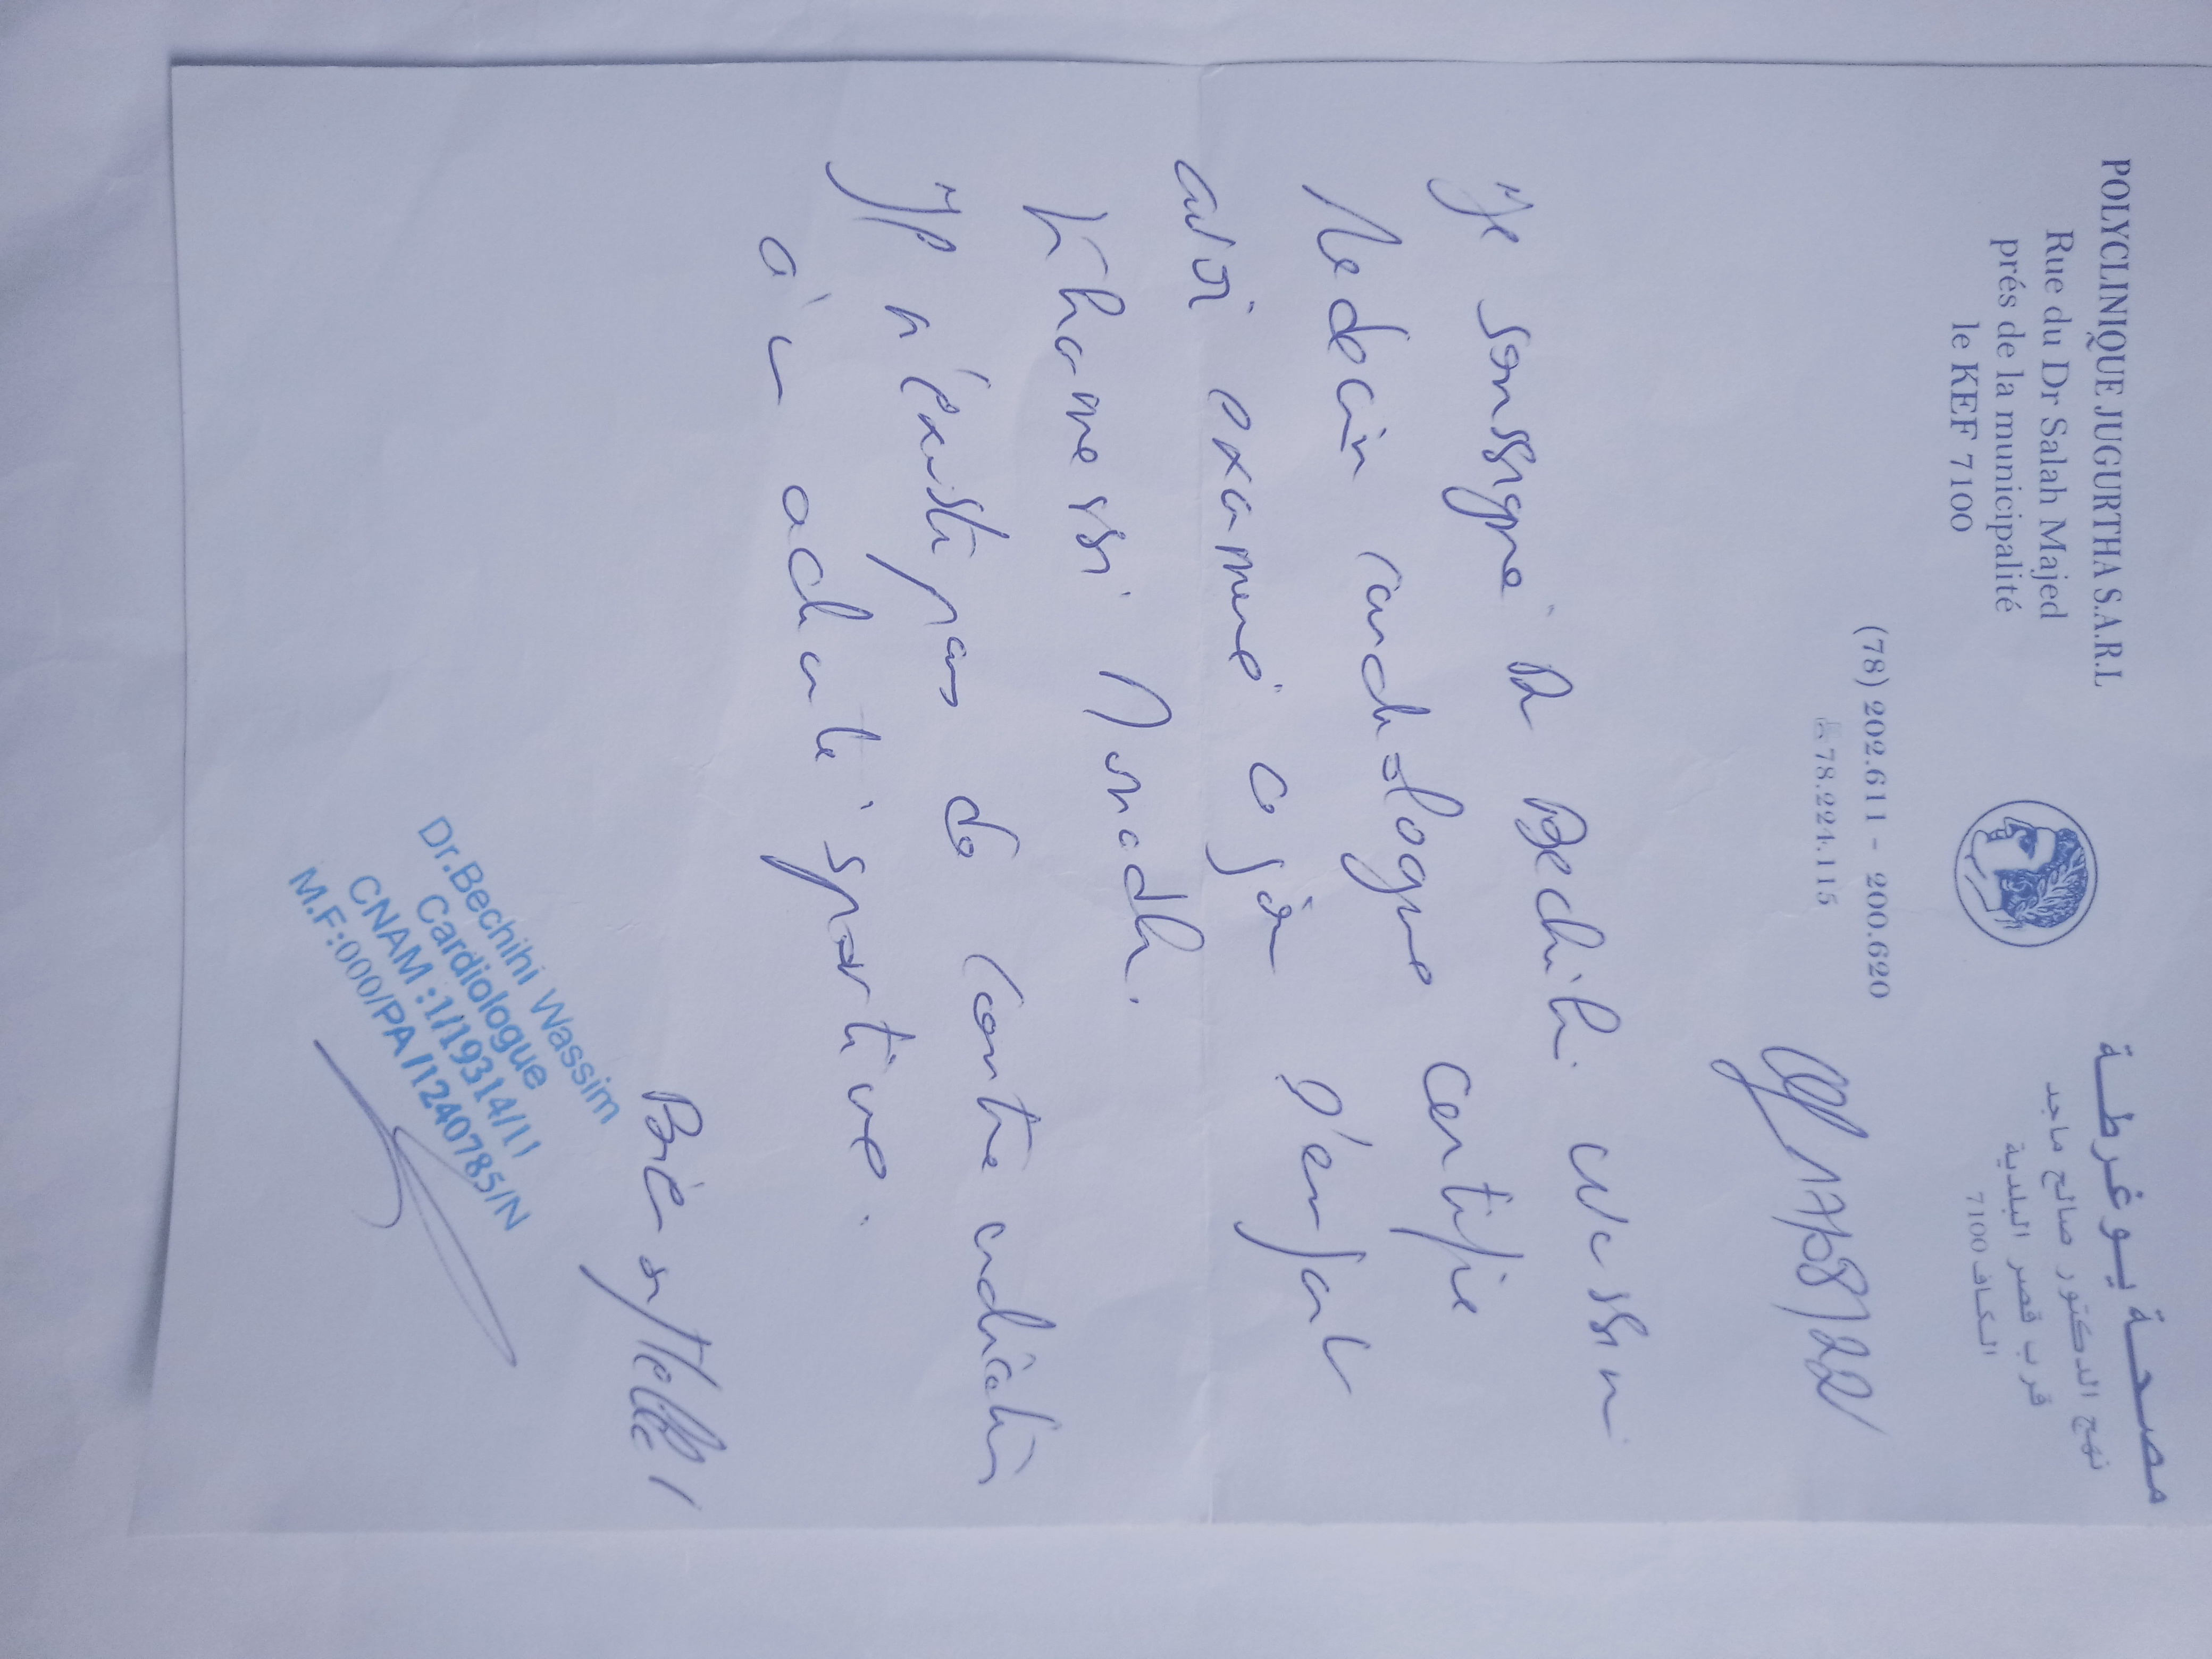 POLYCLINIQUE JUGURTHA S.A.R.L
Rue du Dr Salah Majed
prés de la municipalité
le KEF 7100
مصحة يوغرطة
نهج الدكتور صالح ماجد
قرب قصر البلدية
الكاف 7100
(78) 202.611 - 200.620
78.224.115
17/08/22
Je soussigné Dr Bechihi Wassim
Medecin cardiologue certifie
avoir examiné ce jour l'enfant
Khamessi
Il n'éxiste pas de contre indication
à activité sportive.
Dr.Bechihi Wassim
Cardiologue
CNAM :1/19314/11
M.F:000/PA/1240785/N